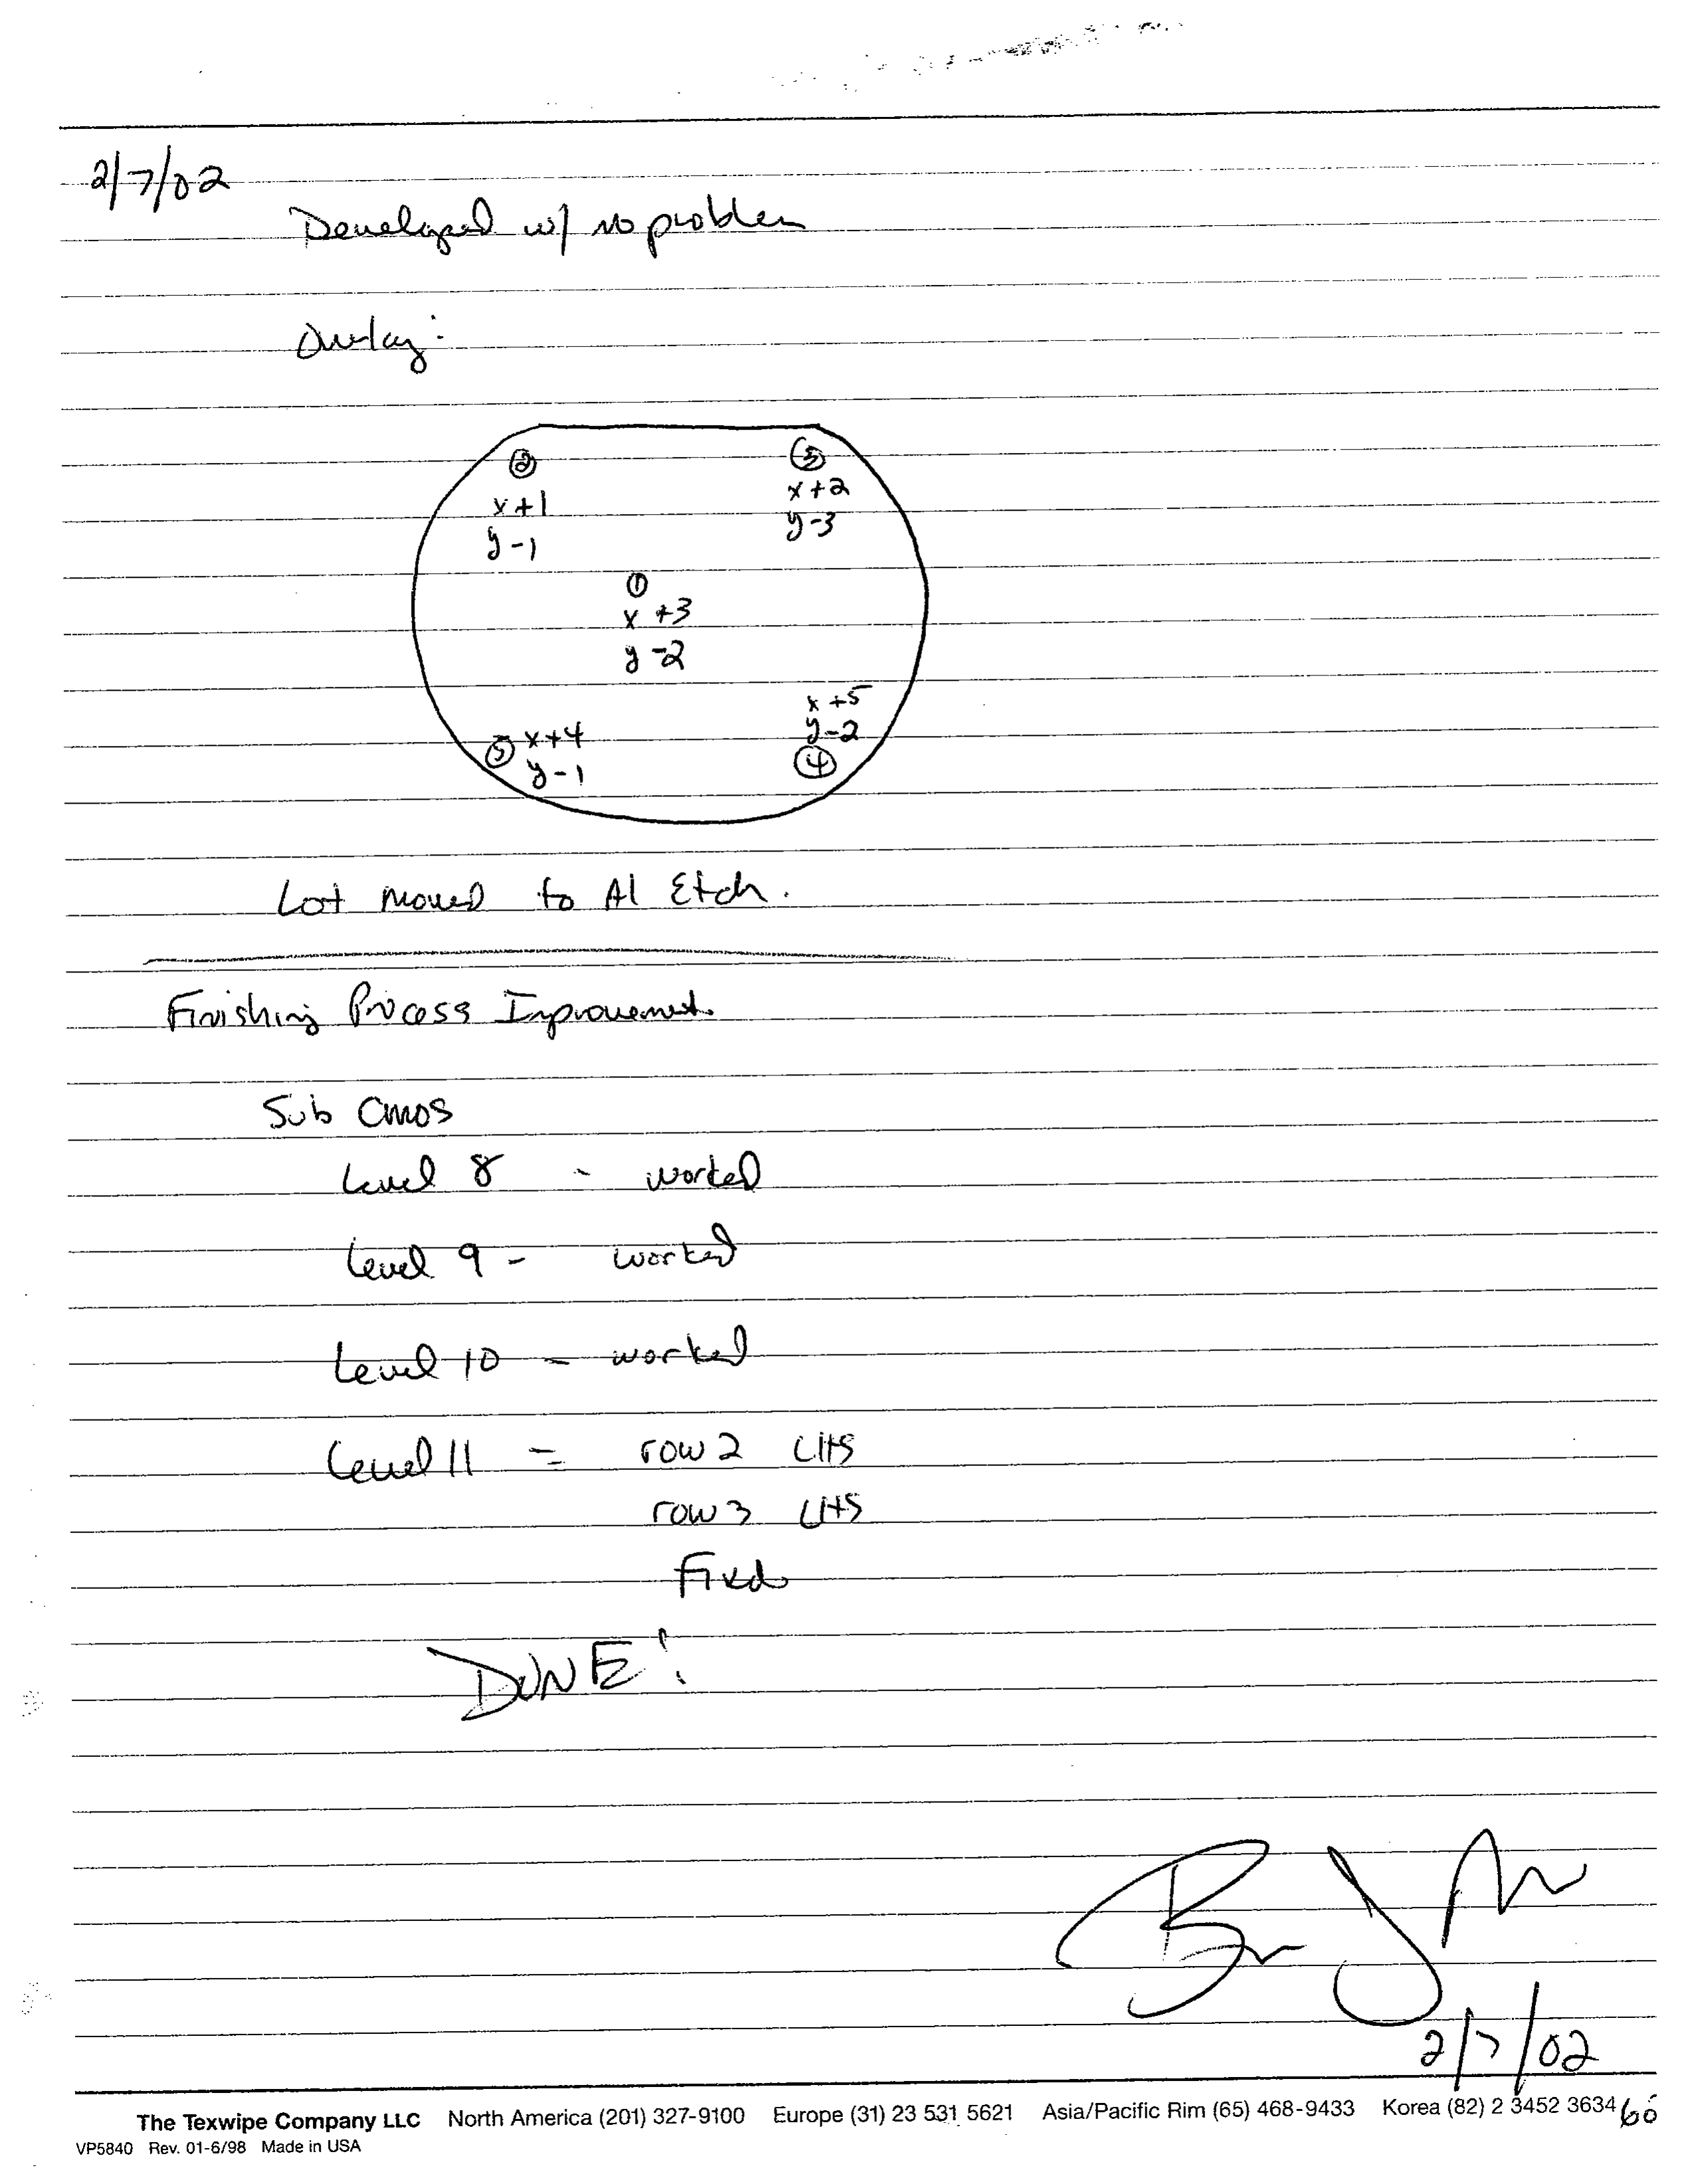 2/7/02
Developed w/ no problem
Overlay:
② ③
x+1 x+2
y-1 y-3
①
x +3
y -2
x +5
y-2
⑤ x+4
y-1
④
Lot moved to Al Etch.
Finishing Process Improvement.
Sub CMOS
Level 8 - worked
Level 9 - worked
Level 10 - worked
Level 11 = row 2 LHS
row 3 LHS
Fixed
DONE!
2/7/02
The Texwipe Company LLC North America (201) 327-9100 Europe (31) 23 531 5621 Asia/Pacific Rim (65) 468-9433 Korea (82) 2 3452 3634 60
VP5840 Rev. 01-6/98 Made in USA